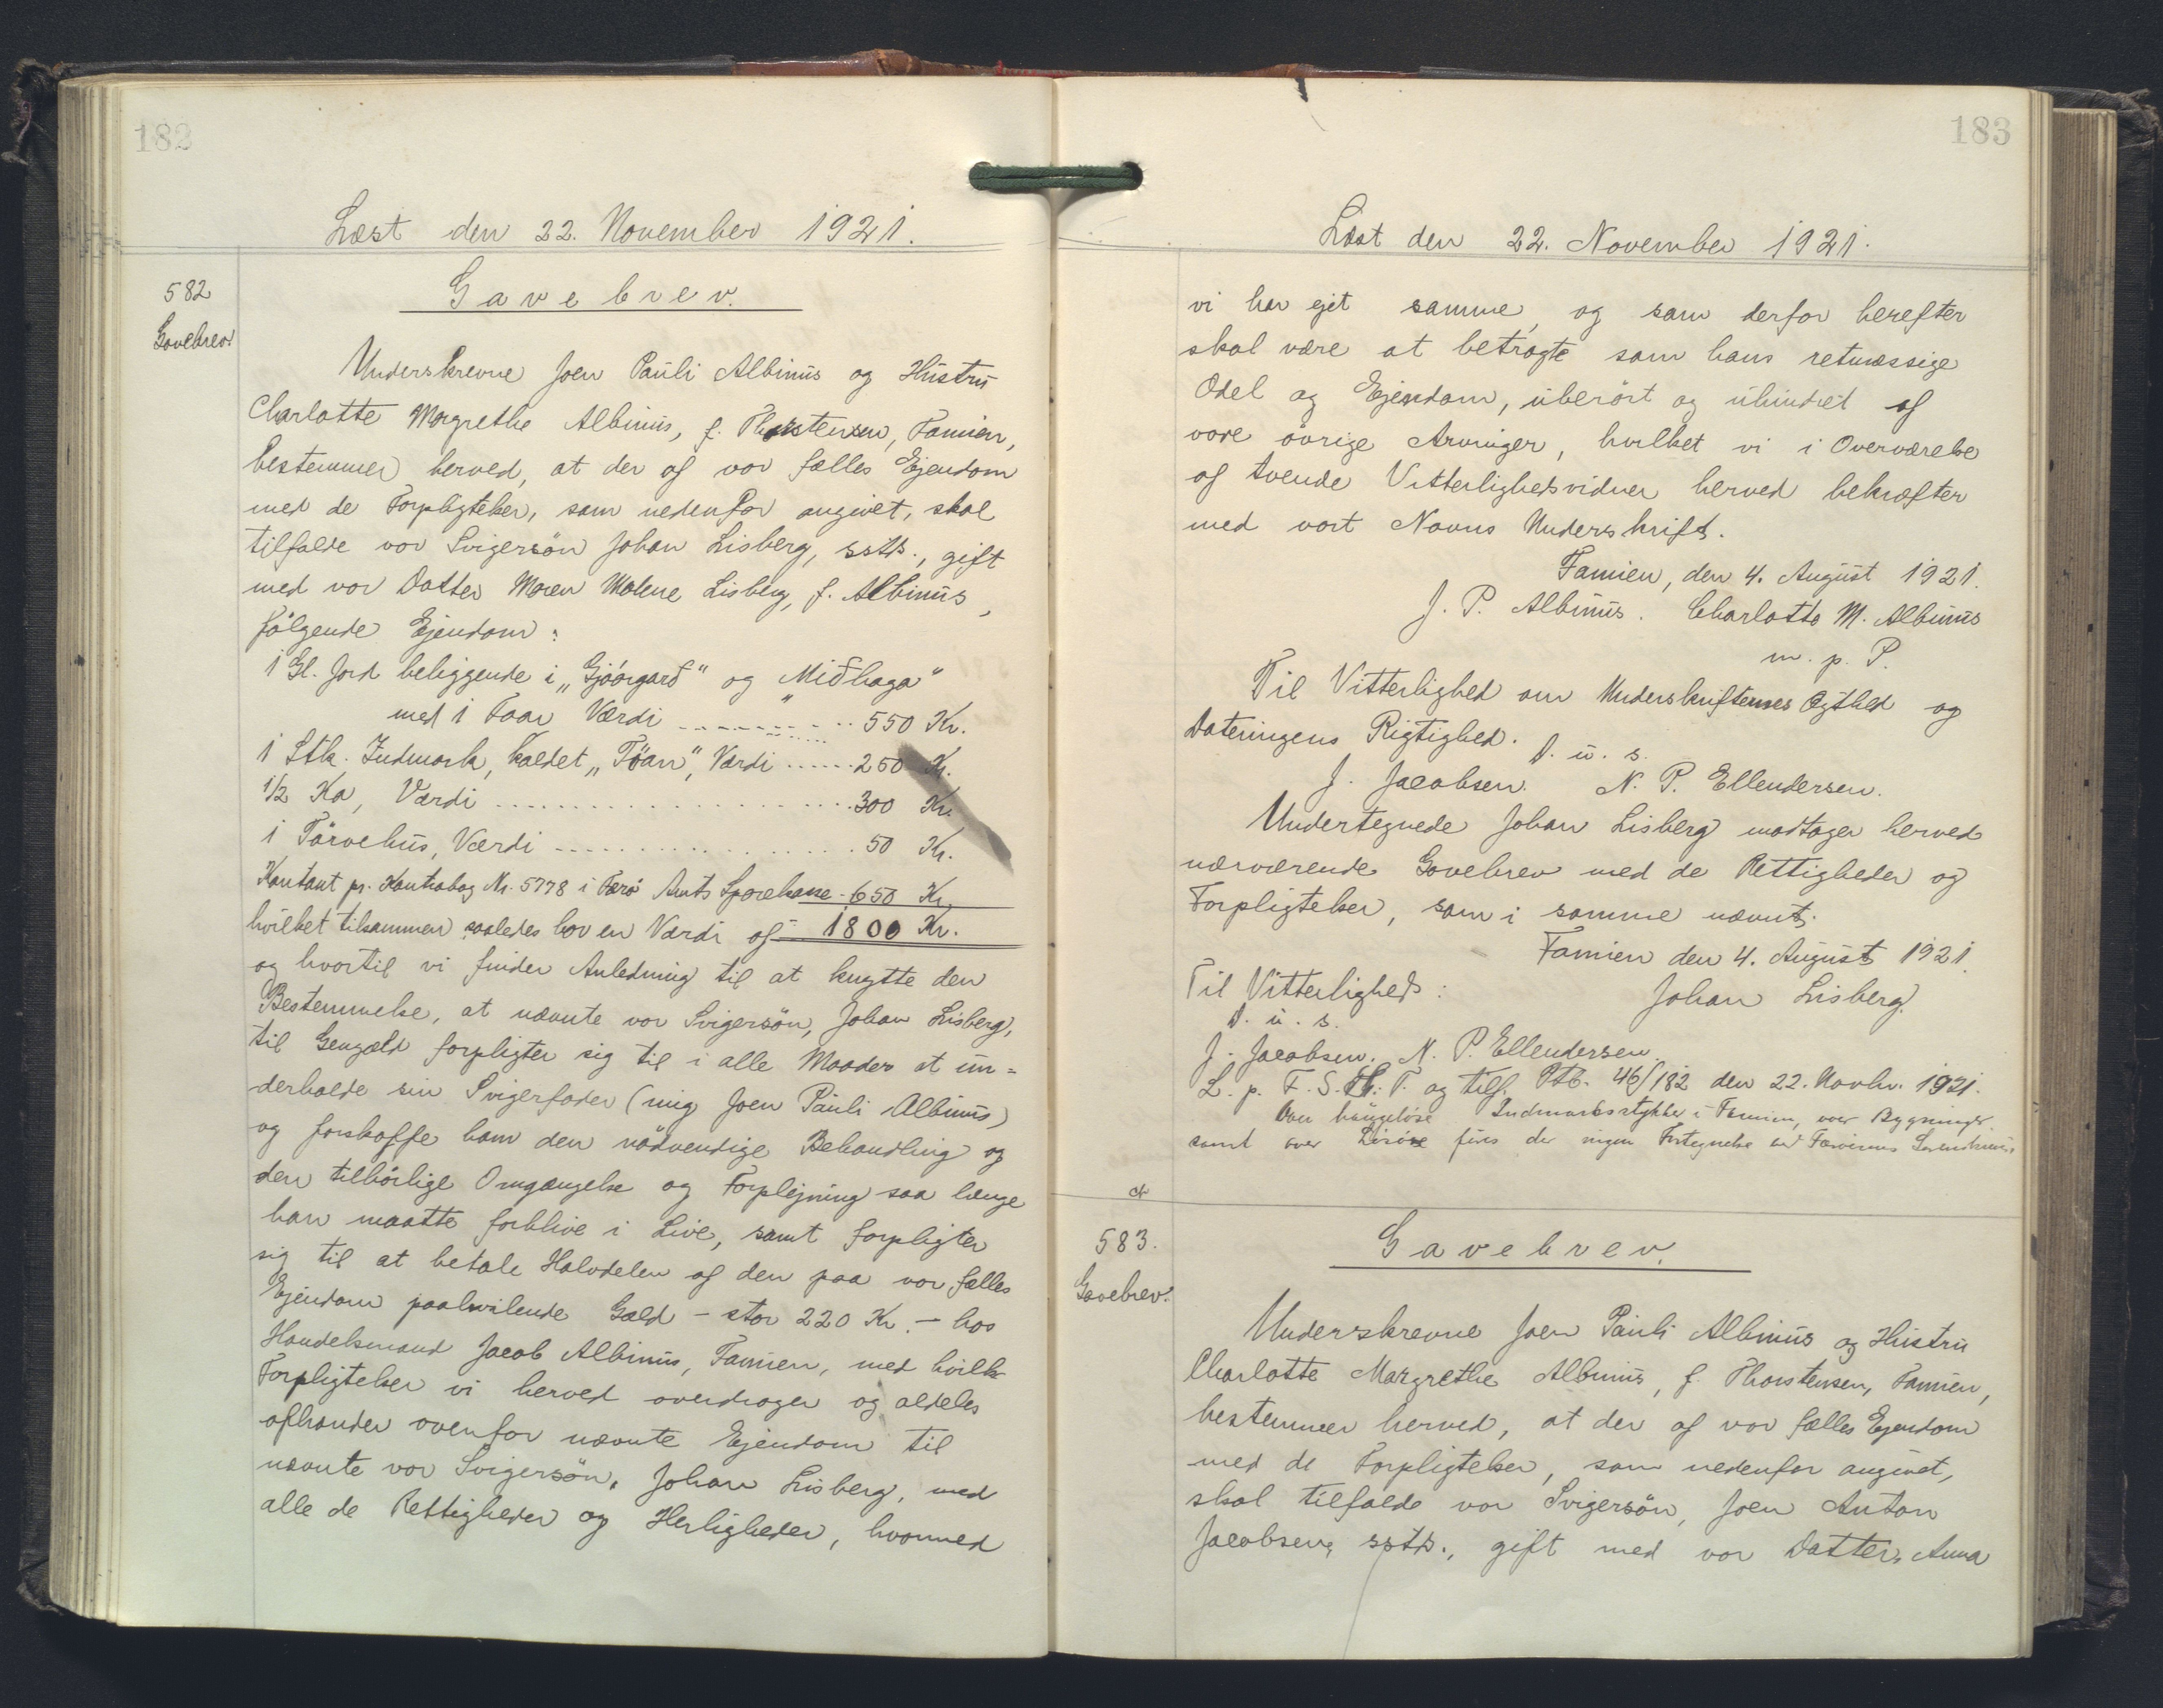 182
Læst den 22. November 1921.
582
Gavebrev.
Gavebrev.
Underskrevne Joen Pauli Albinus og Hustru
Charlotte Margrethe Albinus, f. Thorstensen, Famien,
bestemmer herved, at der af vor fælles Ejendom
med de Forpligtelser, som nedenfor angivet, skal
tilfalde vor Svigersön Johan Lisberg, sstds., gift
med vor Datter Maren Malene Lisberg, f. Albinus,
fölgende Ejendom:
1 Gl. Jord beliggende i „Gjógvarð" og „Miðhaga"
med 1 Faar Værdi 550 Kr.
1 Stk. Indmark, kaldet „Töan", Værdi 250 Kr.
1/2 Ko, Værdi 300 Kr.
1 Törvehus, Værdi 50 Kr.
Kontant pr. Kontrabog Nr. 5778 i Færö Amts Sparekasse - 650 Kr.
hvilket tilsammen saaledes har en Værdi af 1800 Kr.
og hvortil vi finder Anledning til at knytte den
Bestemmelse, at nævnte vor Svigersön, Johan Lisberg,
til Gengæld forpligter sig til i alle Maader at un=
derholde sin Svigerfader (mig Joen Pauli Albinus)
og forskaffe ham den nödvendige Behandling og
den tilbörlige Omgængelse og Forplejning saa længe
han maatte forblive i Live, samt forpligter
sig til at betale Halvdelen af den paa vor fælles
Ejendom paahvilende Gæld - stor 220 Kr. - hos
Handelsmand Jacob Albinus, Famien, med hvilke
Forpligtelser vi herved overdrager og aldeles
afhænder ovenfor nævnte Ejendom til
nævnte vor Svigersön, Johan Lisberg, med
alle de Rettigheder og Herligheder, hvormed
183
Læst den 22. November 1921.
vi har ejet samme, og som derfor herefter
skal være at betragte som hans retmæssige
Odel og Ejendom, uberört og uhindret af
vore övrige Arvinger, hvilket vi i Overværelse
af tvende Vitterlighedsvidner herved bekræfter
med vort Navns Underskrift.
Famien, den 4. August 1921.
J. P. Albinus. Charlotte M. Albinus
m. p. P.
Til Vitterlighed om Underskrifternes Ægthed og
Dateringens Rigtighed.
D. u. s.
J. Jacobsen. N. P. Ellendersen.
Undertegnede Johan Lisberg modtager herved
nærværende Gavebrev med de Rettigheder og
Forpligtelser, som i samme nævnt.
Famien den 4. August 1921.
Til Vitterlighed: Johan Lisberg.
D. u. s.
J. Jacobsen. N. P. Ellendersen.
L. p. F. S. Th. T. og tilf. Ptb. 46/182 den 22. Novbr. 1921.
Over haugelöse Indmarksstykker i Famien, over Bygninger
samt over Lösöre fines der ingen Fortegnelse ved Færöernes
583.
Gavebrev.
Gavebrev.
Underskrevne Joen Pauli Albinus og Hustru
Charlotte Margrethe Albinus, f. Thorstensen, Famien,
bestemmer herved, at der af vor fælles Ejendom
med de Forpligtelser, som nedenfor angivet,
skal tilfalde vor Svigersön, Joen Anton
Jacobsen, sstds., gift med vor Datter, Anna